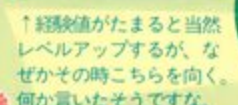 ↑経験値がたまると当然
レベルアップするが、な
ぜかその時こちらを向く。
何か言いたそうですな